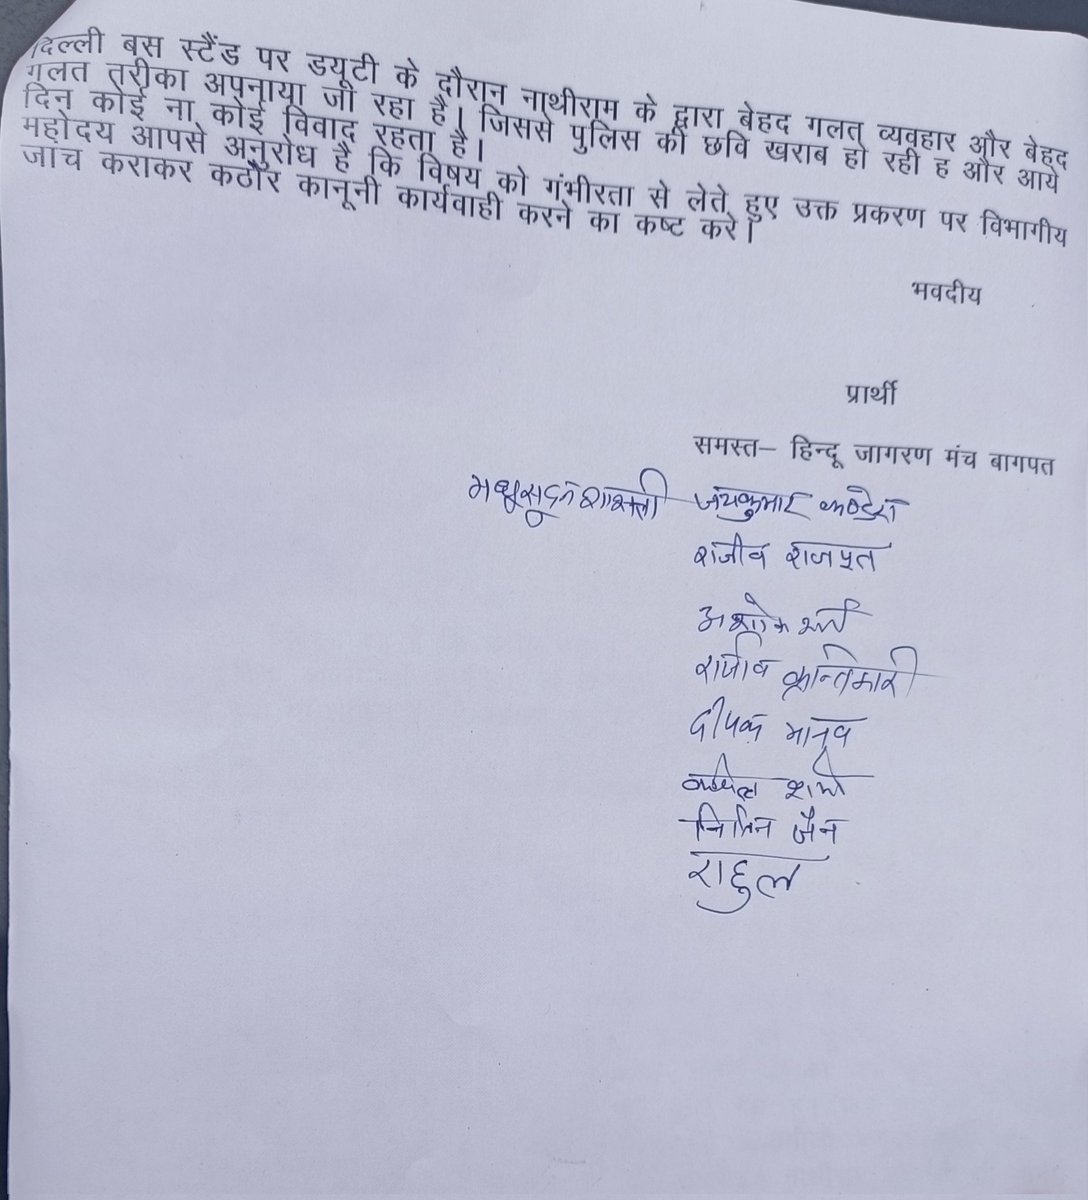 दिल्ली बस स्टैंड पर डयूटी के दौरान नाथीराम के द्वारा बेहद गलत व्यवहार और बेहद
गलत तरीका अपनाया जा रहा है। जिससे पुलिस की छवि खराब हो रही ह और आये
दिन कोई ना कोई विवाद रहता है।
महोदय आपसे अनुरोध है कि विषय को गंभीरता से लेते हुए उक्त प्रकरण पर विभागीय
जांच कराकर कठोर कानूनी कार्यवाही करने का कष्ट करे।
भवदीय
प्रार्थी
समस्त– हिन्दू जागरण मंच बागपत
मधुसूदन शास्त्री जयकुमार
राजीव राजपूत
अशोक शर्मा
राजीव क्रान्तिकारी
दीपक मानव
नितिन जैन
राहुल